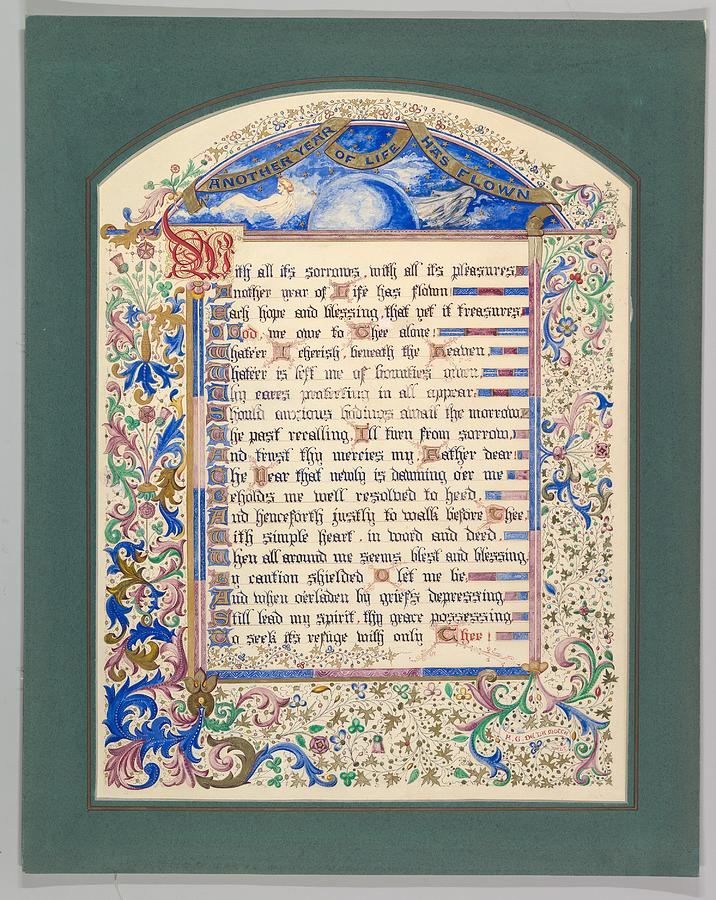 ANOTHER YEAR OF LIFE HAS FLOWN
With all its sorrows, with all its pleasures,
Another year of Life has flown
Each hope and blessing, that yet it treasures,
O God, we owe to Thee alone!
Whate'er I cherish, beneath the Heaven,
Whate'er is left me of bounties given,
Thy cares protecting in all appear,
Should anxious bodings await the morrow
The past recalling, I'll turn from sorrow,
And trust thy mercies my Father dear!
The Year that newly is dawning o'er me
Beholds me well resolved to heed,
And henceforth justly to walk before Thee,
With simple heart, in word and deed,
When all around me seems blest and blessing,
By caution shielded O let me be,
And when o'erladen by griefs depressing
Still lead my spirit, thy grace possessing
To seek its refuge with only Thee!
F. G. DELAMOTTE